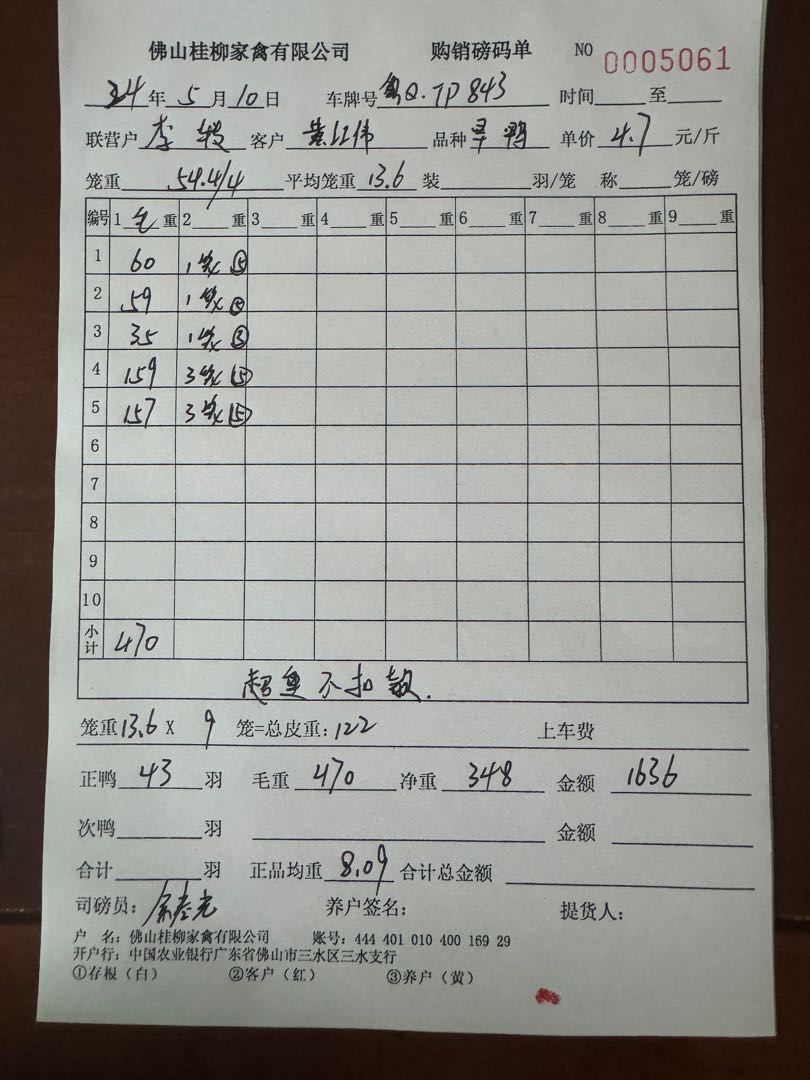 佛山桂柳家禽有限公司 购销磅码单 NO 0005061
24 年 5 月 10 日 车牌号 粤Q·TP843 时间 至
联营户 李 客户 黄红伟 品种 旱鸭 单价 4.7 元/斤
笼重 54.4/4 平均笼重 13.6 装 羽/笼 称 笼/磅
编号 1 毛 重 2 重 3 重 4 重 5 重 6 重 7 重 8 重 9 重
1 60 1笼 ⑤
2 59 1笼 ⑤
3 35 1笼 ③
4 159 3笼 ⑮
5 157 3笼 ⑮
6
7
8
9
10
小计 470
超重不扣款.
笼重 13.6 X 9 笼=总皮重: 122 上车费
正鸭 43 羽 毛重 470 净重 348 金额 1636
次鸭 羽 金额
合计 羽 正品均重 8.09 合计总金额
司磅员: 养户签名: 提货人:
户 名: 佛山桂柳家禽有限公司 账号: 444 401 010 400 169 29
开户行: 中国农业银行广东省佛山市三水区三水支行
①存根(白) ②客户(红) ③养户(黄)